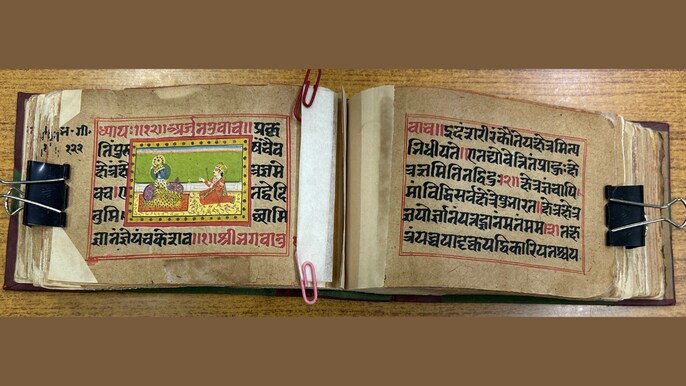 भ.गी.
१२२
ध्यायः॥१२॥अर्जुनउवाच॥प्रकृ
तिंपुरु षंचैव
क्षेत्रंक्षे त्रज्ञमे
वच॥ए तद्वेदि
तुमि च्छामि
ज्ञानंज्ञेयंचकेशव॥१॥श्रीभगवानु
वाच॥इदंशरीरंकौंतेयक्षेत्रमित्य
भिधीयते॥एतद्योवेत्तितंप्राहुःक्षे
त्रज्ञमितितद्विदः॥२॥क्षेत्रज्ञंचापि
मांविद्धिसर्वक्षेत्रेषुभारत॥क्षेत्रक्षेत्र
ज्ञयोर्ज्ञानंयत्तज्ज्ञानंमतंमम॥३॥तत्क्षे
त्रंयच्चयादृक्चयद्विकारियतश्चय